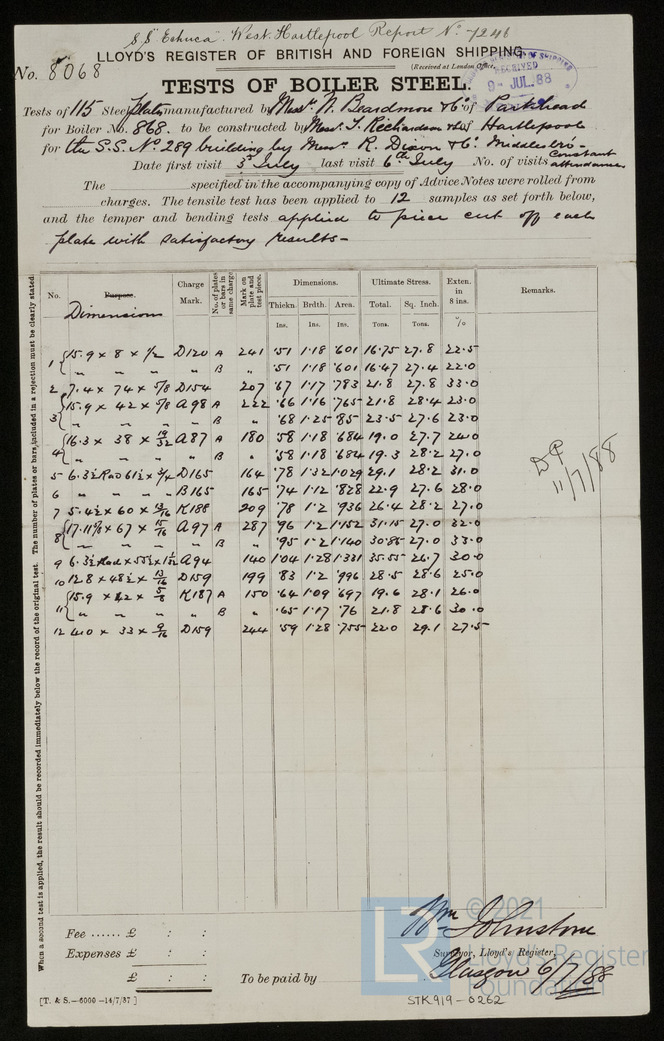 S.S. "Echuca". West Hartlepool Report No. 7246
LLOYD'S REGISTER OF BRITISH AND FOREIGN SHIPPING.
No. 8068
(Received at London Office,
RECEIVED
9 JUL. 88
TESTS OF BOILER STEEL.
Tests of 115 Steel Plates manufactured by Messrs. W. Beardmore & Co. of Parkhead
for Boiler No. 868. to be constructed by Messrs. T. Richardson & Sons of Hartlepool
for the S.S. No 289 building by Messrs. R. Dixon & Co. Middlesbro-
Date first visit 3rd July last visit 6th July No. of visits Constant attendance.
The specified in the accompanying copy of Advice Notes were rolled from
charges. The tensile test has been applied to 12 samples as set forth below,
and the temper and bending tests applied to piece cut off each
plate with satisfactory results-
No. Purpose. Dimensions Charge Mark. No. of plates or bars in same charge Mark on plate and test piece. Dimensions. Ultimate Stress. Exten. in 8 ins. Remarks.
Thickn. Brdth. Area. Total. Sq. Inch.
Ins. Ins. Ins. Tons. Tons. %
1 15.9 × 8 × 1/2 D120 A 241 .51 1.18 .601 16.75 27.8 22.5
" " " B " .51 1.18 .601 16.47 27.4 22.0
2 7.4 × 74 × 5/8 D154 207 .67 1.17 .783 21.8 27.8 33.0
3 15.9 × 42 × 5/8 A98 A 222 .66 1.16 .765 21.8 28.4 23.0
" " " B " .68 1.25 .85 23.5 27.6 23.0
4 16.3 × 38 × 19/32 A87 A 180 .58 1.18 .684 19.0 27.7 24.0
" " " B " .58 1.18 .684 19.3 28.2 27.0
5 6.3½ Rad 61½ × 3/4 D165 164 .78 1.32 1.029 29.1 28.2 31.0
6 " " " " B165 165 .74 1.12 .828 22.9 27.6 28.0
7 5.4½ × 60 × 3/16 K188 209 .78 1.2 .936 26.4 28.2 27.0
8 17.11⅝ × 67 × 15/16 A97 A 287 .96 1.2 1.152 31.15 27.0 32.0
" " " B " .95 1.2 1.140 30.85 27.0 33.0
9 6.3½ Rad × 55½ × 1 1/32 A94 140 1.04 1.28 1.331 35.55 26.7 30.0
10 12.8 × 48½ × 13/16 D159 199 .83 1.2 .996 28.5 28.6 25.0
11 15.9 × 42 × 5/8 K187 A 150 .64 1.09 .697 19.6 28.1 26.0
" " " " B " .65 1.17 .76 21.8 28.6 30.0
12 4.0 × 33 × 9/16 D159 244 .59 1.28 .755 22.0 29.1 27.5
11/7/88
When a second test is applied, the result should be recorded immediately below the record of the original test. The number of plates or bars included in a rejection must be clearly stated.
Fee ...... £ : :
Expenses £ : :
£ : :
To be paid by
Wm Johnstone
Surveyor, Lloyd's Register,
Glasgow 6/7/88
[T. & S.—6000—14/7/87]
STK919-0262
LR
© 2021
Lloyd's Register
Foundation